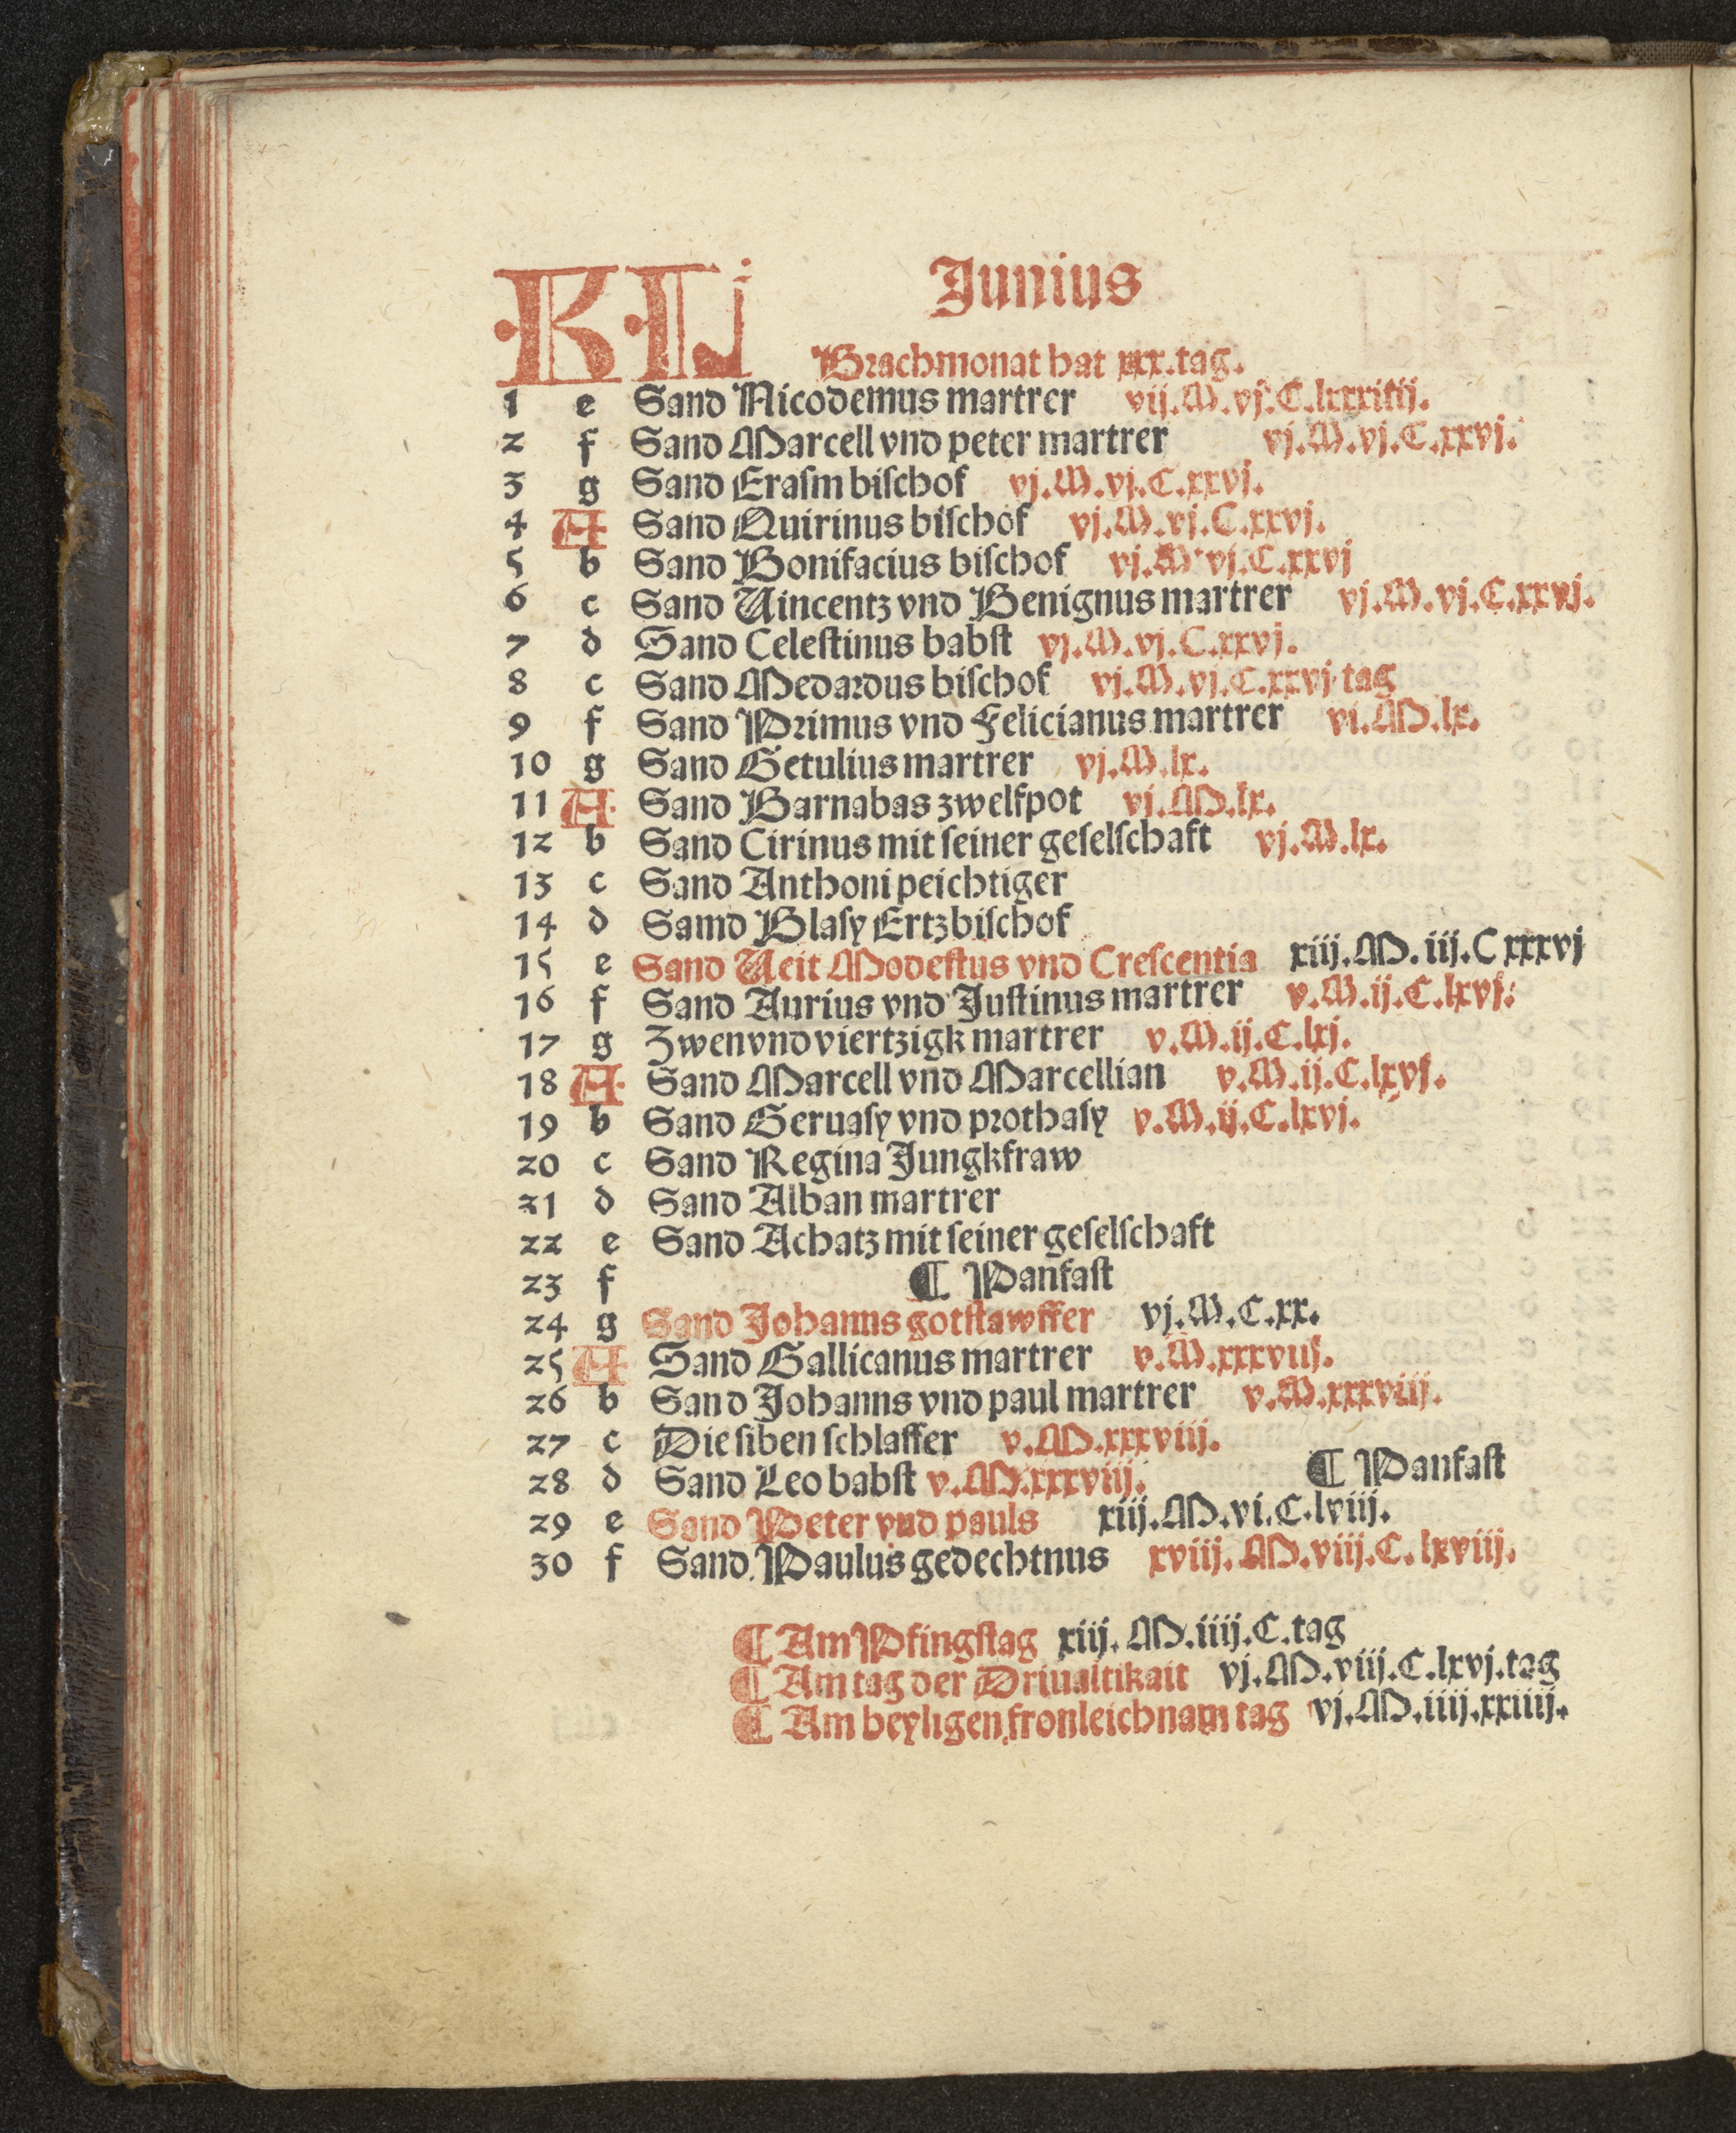 KL Junius
Brachmonat hat xxx.tag.
1 e Sand Nicodemus martrer vij.M.vj.C.lxxxiiij.
2 f Sand Marcell vnd peter martrer vj.M.vj.C.xxvj.
3 g Sand Erasm bischof vj.M.vj.C.xxvj.
4 A Sand Quirinus bischof vj.M.vj.C.xxvj.
5 b Sand Bonifacius bischof vj.M.vj.C.xxvj
6 c Sand Uincentz vnd Benignus martrer vj.M.vj.C.xxvj.
7 d Sand Celestinus babst vj.M.vj.C.xxvj.
8 c Sand Medardus bischof vj.M.vj.C.xxvj tag
9 f Sand Primus vnd Felicianus martrer vi.M.lx.
10 g Sand Getulius martrer vj.M.lx.
11 A Sand Barnabas zwelfpot vj.M.lx.
12 b Sand Cirinus mit seiner geselschaft vj.M.lx.
13 c Sand Anthoni peichtiger
14 d Samd Blasy Ertzbischof
15 e Sand Ueit Modestus vnd Crescentia xiij.M.iij.C xxxvj
16 f Sand Aurius vnd Justinus martrer v.M.ij.C.lxvj.
17 g Zwenvndviertzigk martrer v.M.ij.C.lxj.
18 A Sand Marcell vnd Marcellian v.M.ij.C.lxvj.
19 b Sand Geruasy vnd prothasy v.M.ij.C.lxvj.
20 c Sand Regina Jungkfraw
21 d Sand Alban martrer
22 e Sand Achatz mit seiner geselschaft
23 f ¶ Panfast
24 g Sand Johanns gotstawffer vj.M.C.xx.
25 A Sand Gallicanus martrer v.M.xxxviij.
26 b Sand Johanns vnd paul martrer v.M.xxxviij.
27 c Die siben schlaffer v.M.xxxviij.
28 d Sand Leo babst v.M.xxxviij. ¶ Panfast
29 e Sand Peter vnd pauls xiij.M.vi.C.lviij.
30 f Sand Paulus gedechtnus xviij.M.viij.C.lxviij.
¶ Am Pfingstag xiij.M.iiij.C.tag
¶ Am tag der Driualtikait vj.M.viij.C.lxvj.tag
¶ Am heyligen fronleichnam tag vj.M.iiij.xxiiij.